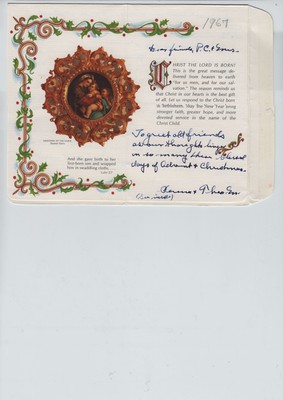 1967
Dear friends, P.C. & Sons.
CHRIST THE LORD IS BORN!
This is the great message de-
livered from heaven to earth
"for us men, and for our sal-
vation." The season reminds us
that Christ in our hearts is the best gift
of all. Let us respond to the Christ born
in Bethlehem. May the New Year bring
stronger faith, greater hope, and more
devoted service in the name of the
Christ Child.
To greet all friends
as our thoughts
on so many these
days of Advent & Christmas.
And she gave birth to her
first-born son and wrapped
him in swaddling cloths.
Luke 2:7